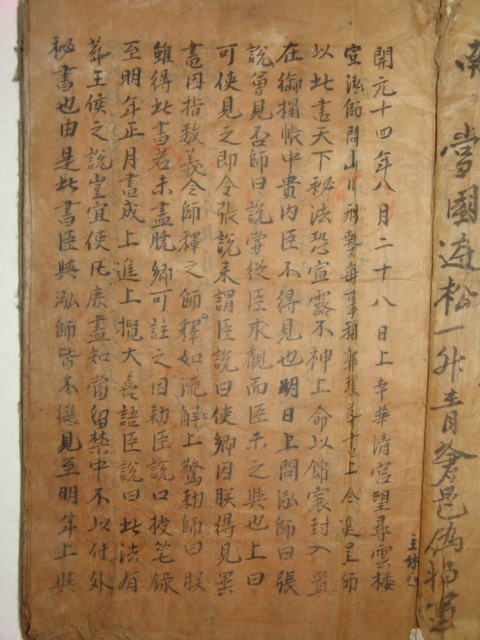 開元十四年八月二十八日上幸華清宮望尋雲樓
宣泓師問山川形勢每事稱郭璞書上令進呈師
以此書天下秘法恐宣露不神上命以錦囊封入置
在御榻帳中貴內臣不得見也明日上問泓師曰張
說曾見否師曰說掌從臣求觀而臣未之與也上曰
可使見之即令張說來謂臣說曰使卿因朕得見異
書因指數義令師釋之師釋如流解上驚勅師曰朕
雖得此書若未盡脫卿可註之因勅臣說口授筆錄
至明年正月書成上進上攬大喜語臣說曰此法有
葬王侯之說豈宜使氏庶盡知當留禁中不以付外
秘書也由是此書臣與泓師皆不復見至明年上與